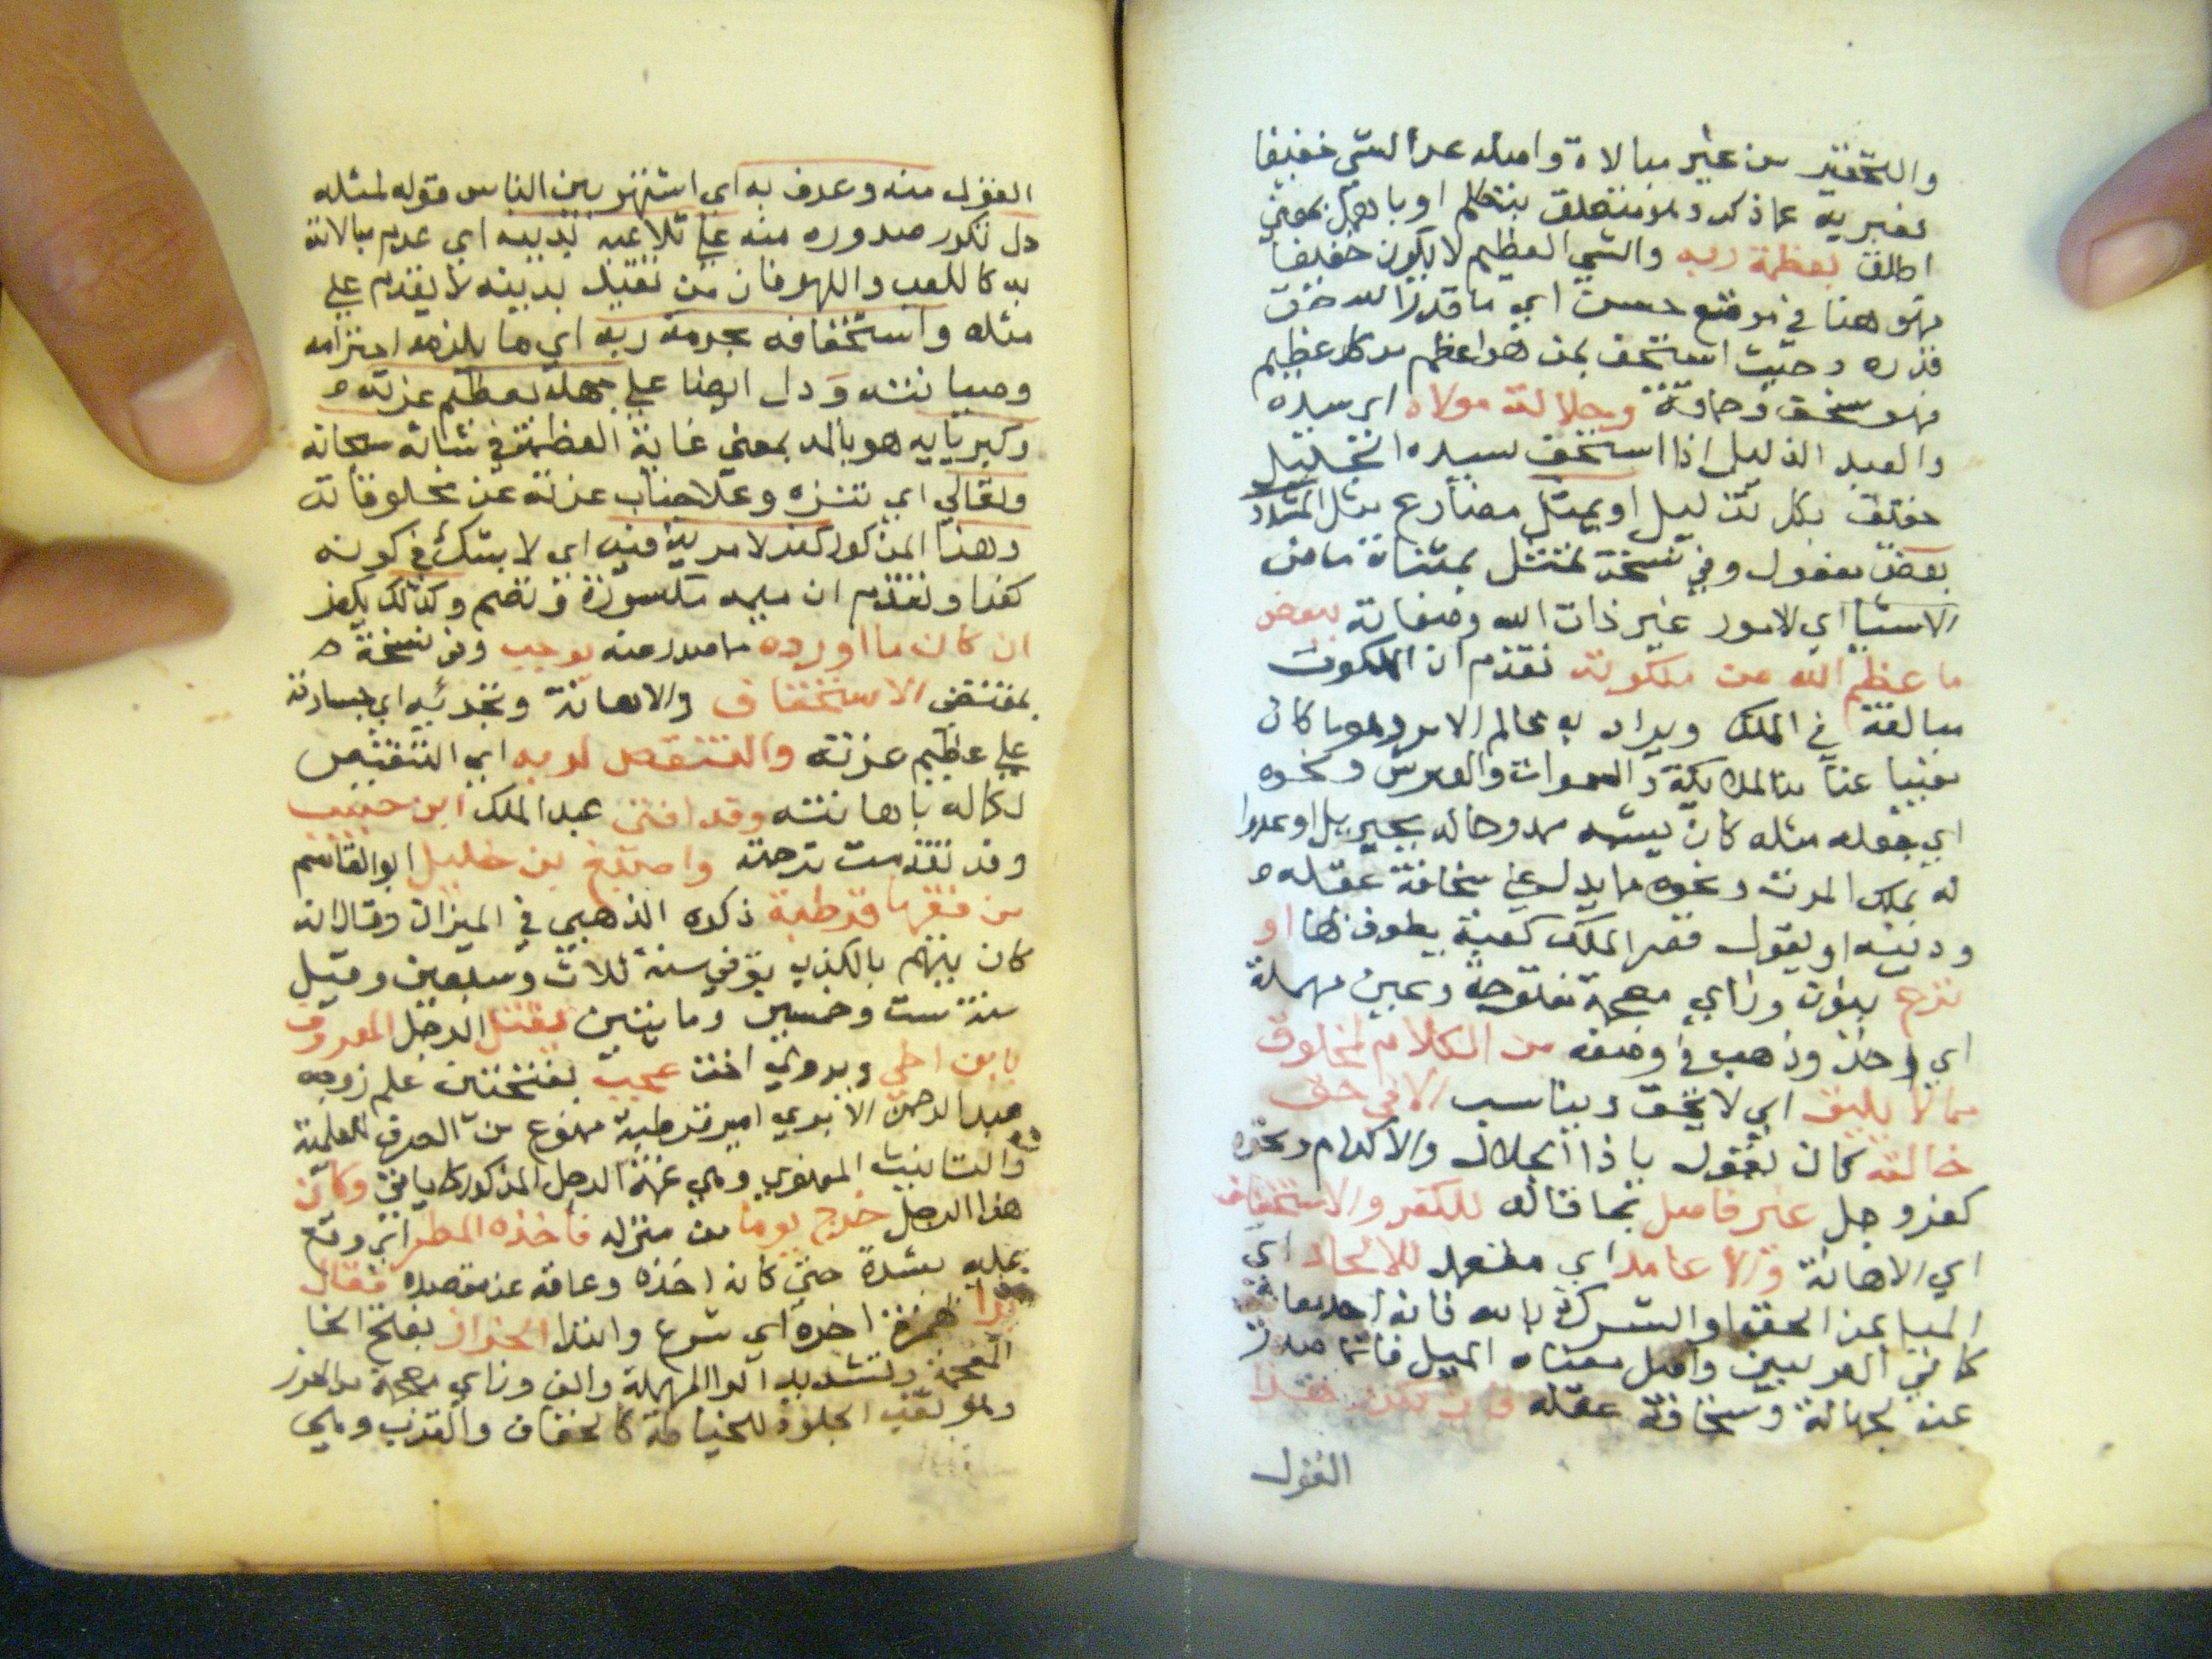 والتحقير من غير مبالاة وامثله عد الشي خفيفا
فعبر به عما ذكر وهو متعلق بتكلم او باهمل بمعني
اطلق بعظمة ربه والشي العظيم لا يكون خفيفا
فهو هنا في موقع حسن اي ما قدر الله حق
قدره وحيث استخف بمن هو اعظم من كل عظيم
فهو سخف وحماقة وجلالة مولاه اي سيده
والعبد الذليل اذا استخف بسيده الجليل
حقيق بكل تذليل او يمثل مضارع مثل المشدد
بعض مفعول وفي نسخة تمثل بمثناة ماض
الاشيا اي الامور غير ذات الله وصفاته ببعض
ما عظم الله من ملكوته تقدم ان الملكوت
مبالغة في الملك ويراد به عالم الامر وهو ما كان
مغيبا عنا من الملائكة والسموات والعرش ونحوه
اي جعله مثله كان يشبه ممدوحا له بجبريل او عدوا
له بملك الموت ونحوه مما يدل علي سخافة عقله
ودينه او يقول قصر الملك كعبة يطوف بها او
نزع بنون وزاي معجمة مفتوحة وعين مهملة
اي اخذ وذهب في وصفه من الكلام لمخلوق
بما لا يليق اي لا يحق ويناسب الا في حق
خالقه كان يقول يا ذا الجلال والاكرام ونحوه
كعز وجل غير قاصد بما قاله للكفر والاستخفاف
اي الاهانة ولا عامد اي متعمد للالحاد اي
الميل عن الحق او الشرك بالله فانه احد معانيه
كما في الغريبين واصل معناه الميل فانما صدر
عنه لجهالة وسخافة عقله فان تكرر هذا
القول
القول منه وعرف به اي اشتهر بين الناس قوله لمثله
دل تكرر صدوره منه علي تلاعبه بدينه اي عدم مبالاته
به كاللعب واللهو فان من تقيد بدينه لا يقدم علي
مثله واستخفافه بحرمة ربه اي ما يلزمه احترامه
وصيانته ودل ايضا علي جهله بعظيم عزته
وكبريايه هو بالمد بمعني غاية العظمة في شانه سبحانه
وتعالي اي تنزه وعلا جناب عزته عن مخلوقاته
وهذا المذكور كفر لا مرية فيه اي لا يشك في كونه
كفرا وتقدم ان ميمه مكسورة وتضم وكذلك يكفر
ان كان ما اورده ما صدر عنه يوجب وفي نسخة
بمقتضي الاستخفاف والاهانة وتجريه اي جسارته
علي عظيم عزته والتنقص لربه اي التنقيص
لكماله باهانته وقد افتي عبد الملك ابن حبيب
وقد تقدمت ترجمته واصبغ بن خليل ابو القاسم
من فقها قرطبة ذكره الذهبي في الميزان وقال انه
كان يتهم بالكذب توفي سنة ثلاث وسبعين وقيل
سنة ست وخمسين ومايتين بقتل الرجل المعروف
بابن اخي ويروي اخت عجب بفتحتين علم زوجة
عبد الرحمن الاموي امير قرطبة ممنوع من الصرف للعلمية
والتانيث المعنوي وهي عمة الرجل المذكور كما ياتي وكان
هذا الرجل خرج يوما من منزله فاخذه المطر اي وقع
عليه بشدة حتي كانه اخذه وعاقه عن مقصده فقال
بدا بهمزة اخره اي شرع وابتدا الخراز بفتح الخا
المعجمة وتشديد الرا المهملة والف وزاي معجمة من الخرز
وهو ثقب الجلود للخياطة كالخفاف والقرب وهي